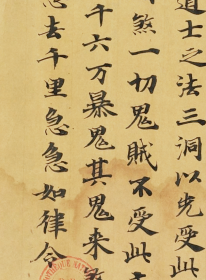 道士之法三洞以先受此
煞一切鬼賊不受此
千六万暴鬼其鬼来
去千里急急如律令